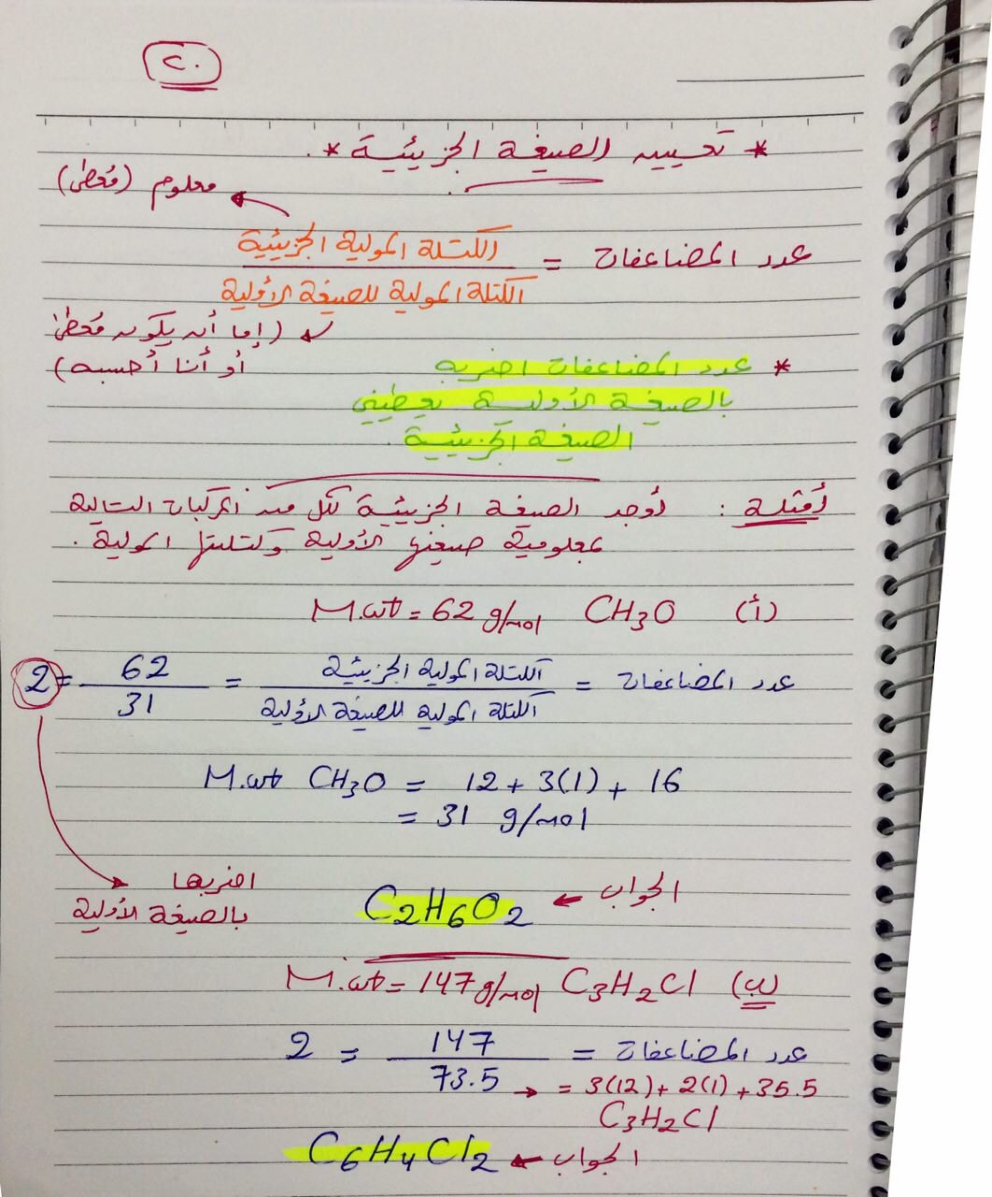 ٢٠
* تعيين الصيغة الجزيئية *
معلوم (مُعطى)
عدد المضاعفات = الكتلة المولية الجزيئية / الكتلة المولية للصيغة الأولية
(إما أن يكون مُعطى
أو أنا أحسبه)
* عدد المضاعفات اضربه
بالصيغة الأولية يعطيني
الصيغة الجزيئية
أمثلة : أوجد الصيغة الجزيئية لكل من المركبات التالية
بمعلومية صيغتها الأولية وكتلتها المولية .
(أ) CH3O M.wt = 62 g/mol
عدد المضاعفات = الكتلة المولية الجزيئية / الكتلة المولية للصيغة الأولية = 62 / 31 = 2
M.wt CH3O = 12 + 3(1) + 16
= 31 g/mol
اضربها
بالصيغة الأولية
الجواب ← C2H6O2
(ب) C3H2Cl M.wt = 147 g/mol
عدد المضاعفات = 147 / 73.5 = 2
→ = 3(12) + 2(1) + 35.5
C3H2Cl
الجواب ← C6H4Cl2